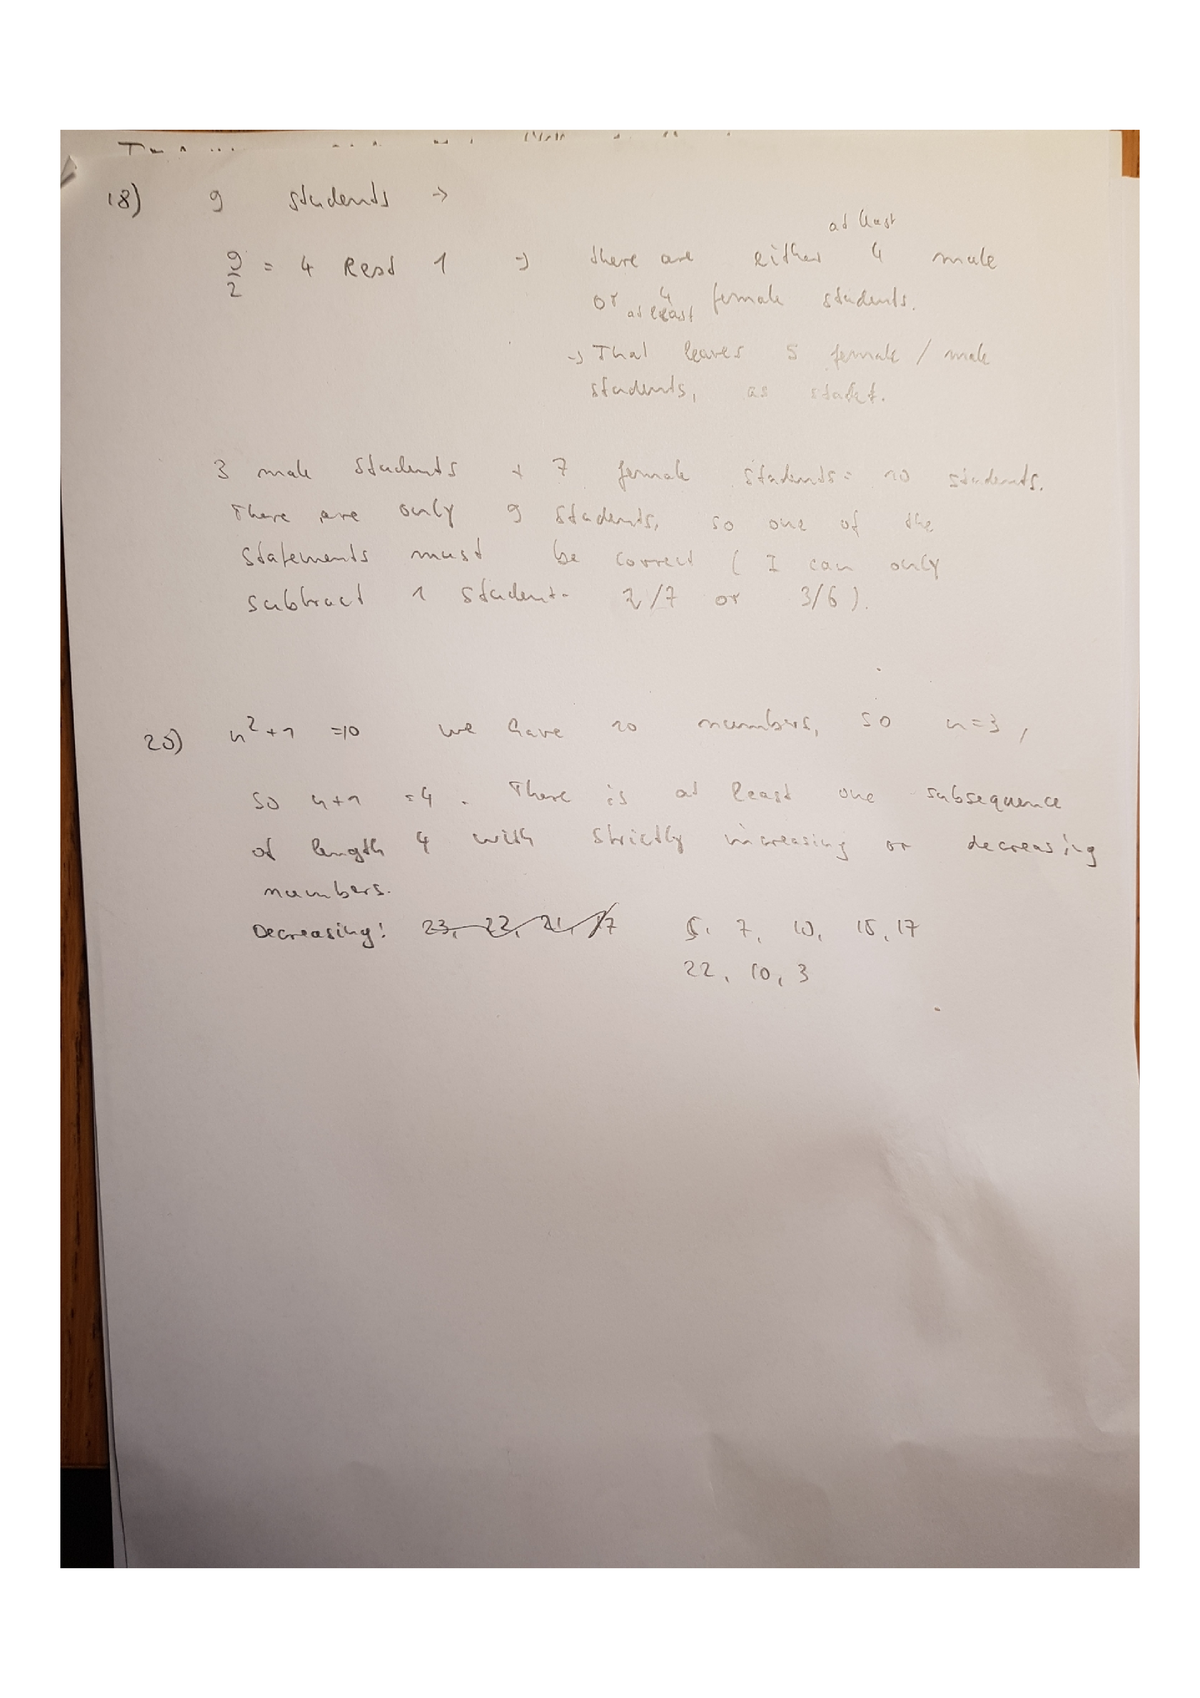 18) 9 students →
at least
9/2 = 4 Rest 1 → there are either 4 male
or at least 4 female students.
→ That leaves 5 female / male
students, as
3 male students + 7 female students = 10 students.
There are only 9 students, so one of the
statements must be correct ( I can only
subtract 1 student- 2/7 or 3/6).
20) n²+1 =10 we have 10 numbers, so n=3,
so n+1 =4. There is at least one subsequence
of length 4 with strictly increasing or decreasing
numbers.
Decreasing: 23, 22, 21, 17 5, 7, 10, 15, 17
22, 10, 3